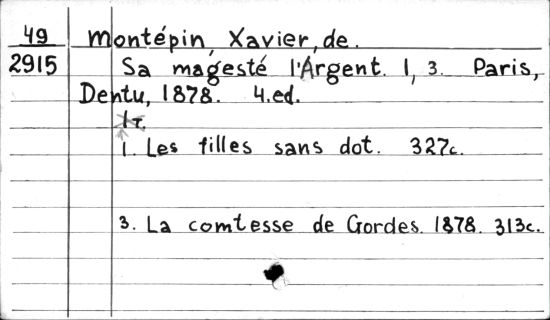 49 Montépin, Xavier, de.
2915 Sa magesté l'Argent. 1, 3. Paris,
Dentu, 1878. 4.ed.
1. Les filles sans dot. 327c.
3. La comtesse de Gordes. 1878. 313c.